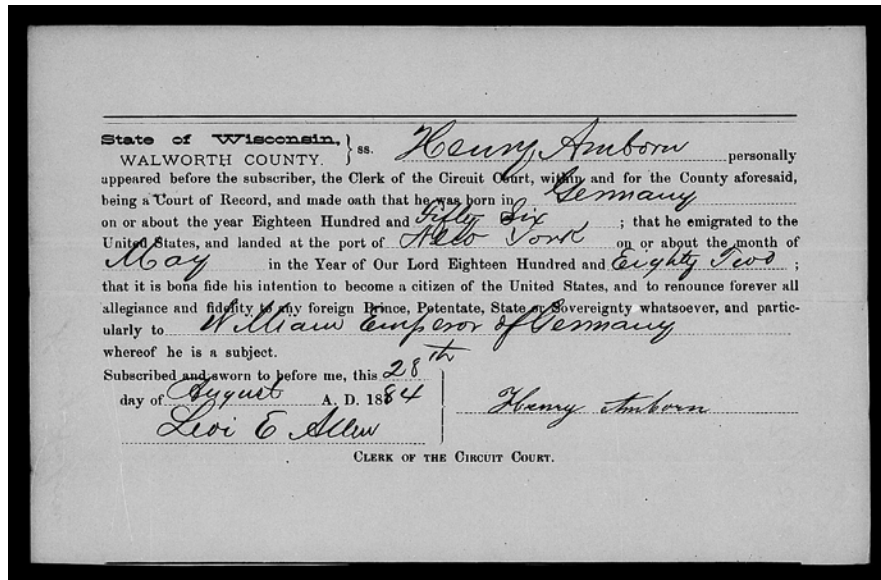 State of Wisconsin, } ss. Henry Amborn personally
WALWORTH COUNTY.
appeared before the subscriber, the Clerk of the Circuit Court, within and for the County aforesaid,
being a Court of Record, and made oath that he was born in Germany
on or about the year Eighteen Hundred and Fifty Six ; that he emigrated to the
United States, and landed at the port of New York on or about the month of
May in the Year of Our Lord Eighteen Hundred and Eighty Two ;
that it is bona fide his intention to become a citizen of the United States, and to renounce forever all
allegiance and fidelity to any foreign Prince, Potentate, State or Sovereignty whatsoever, and partic-
ularly to William Emperor of Germany
whereof he is a subject.
Subscribed and sworn to before me, this 28th
day of August A. D. 1884
Henry Amborn
Levi E Allen
CLERK OF THE CIRCUIT COURT.